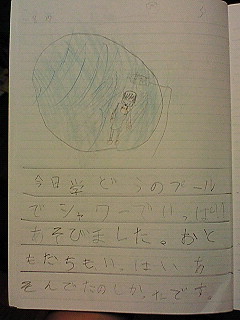 今日学どうのプール
でシャワーでいっぱい
あそびました。おと
もだちもいっぱいあ
そんでたのしかったです。